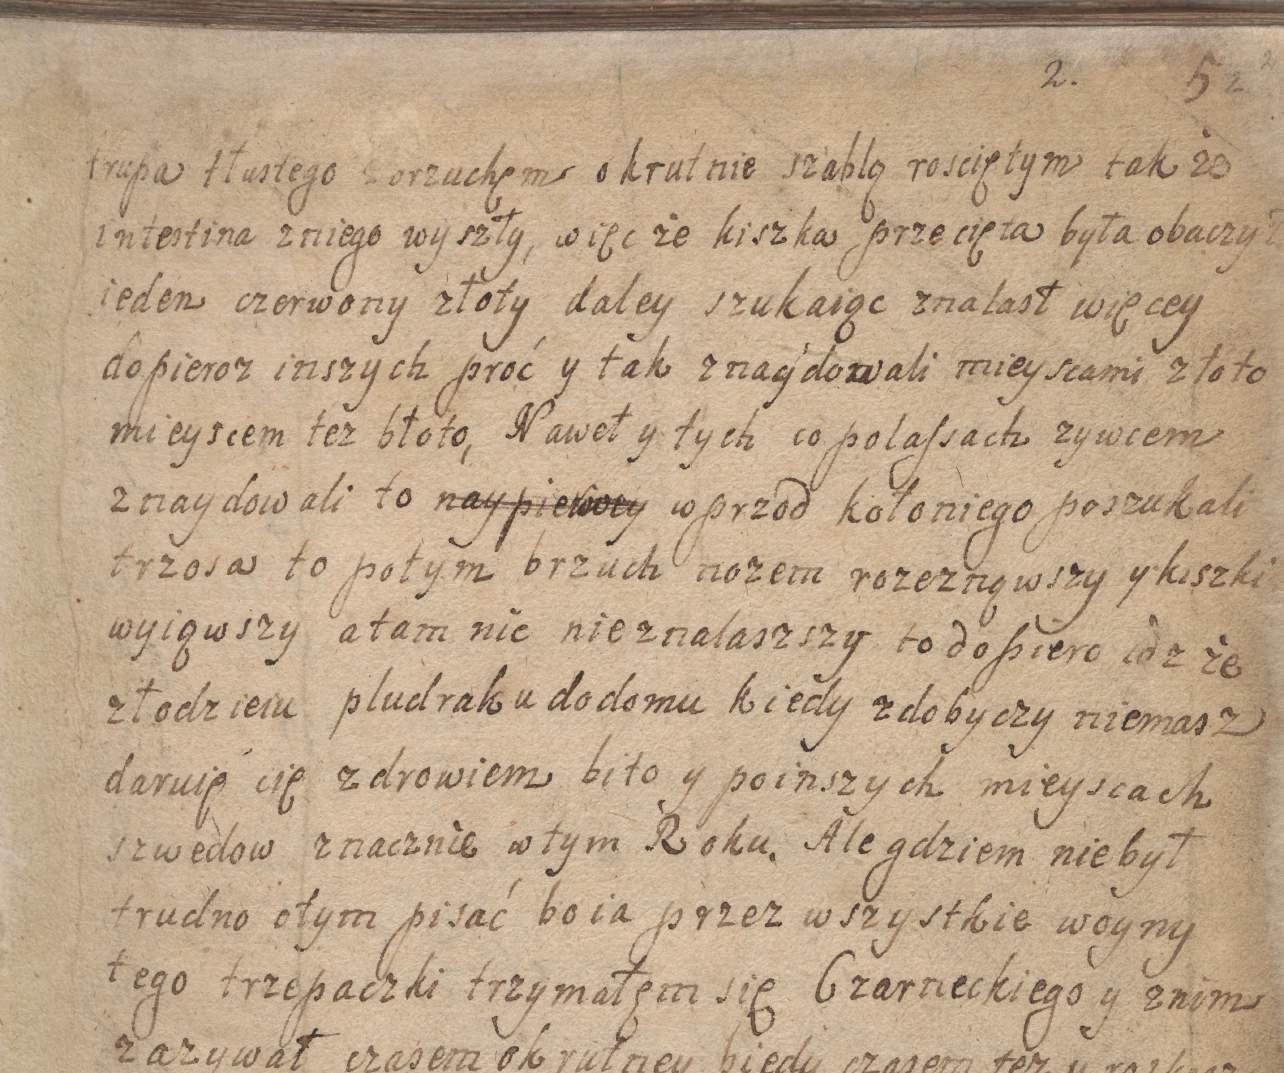 2. 5 2 2
trupa tłustego z brzuchęm okrutnie szablą rosciętym tak że
intestina zniego wyszły, więc że kiszka przecięta była obaczył
ieden czerwony złoty daley szukaiąc znalasł więcey
dopieroz inszych proć y tak znaydowali mieyscami złoto
mieyscem tez błoto, Nawet y tych co polassach zywcem
znaydowali to naypierwey wprzod kołoniego poszukali
trzosa to potym brzuch nozem rozeznąwszy y kiszki
wyiąwszy atam nic nieznalaszszy to dopiero idz że
złodzieiu pludraku dodomu kiedy zdobyczy niemasz
daruię cię zdrowiem bito y poinszych mieyscach
szwedow znacznie wtym Roku. Ale gdziem niebył
trudno otym pisać bo ia przez wszystkie woyny
tego trzepaczki trzymałęm się Czarneckiego y znim
zazywał czasem okrutney biedy czasem tez y